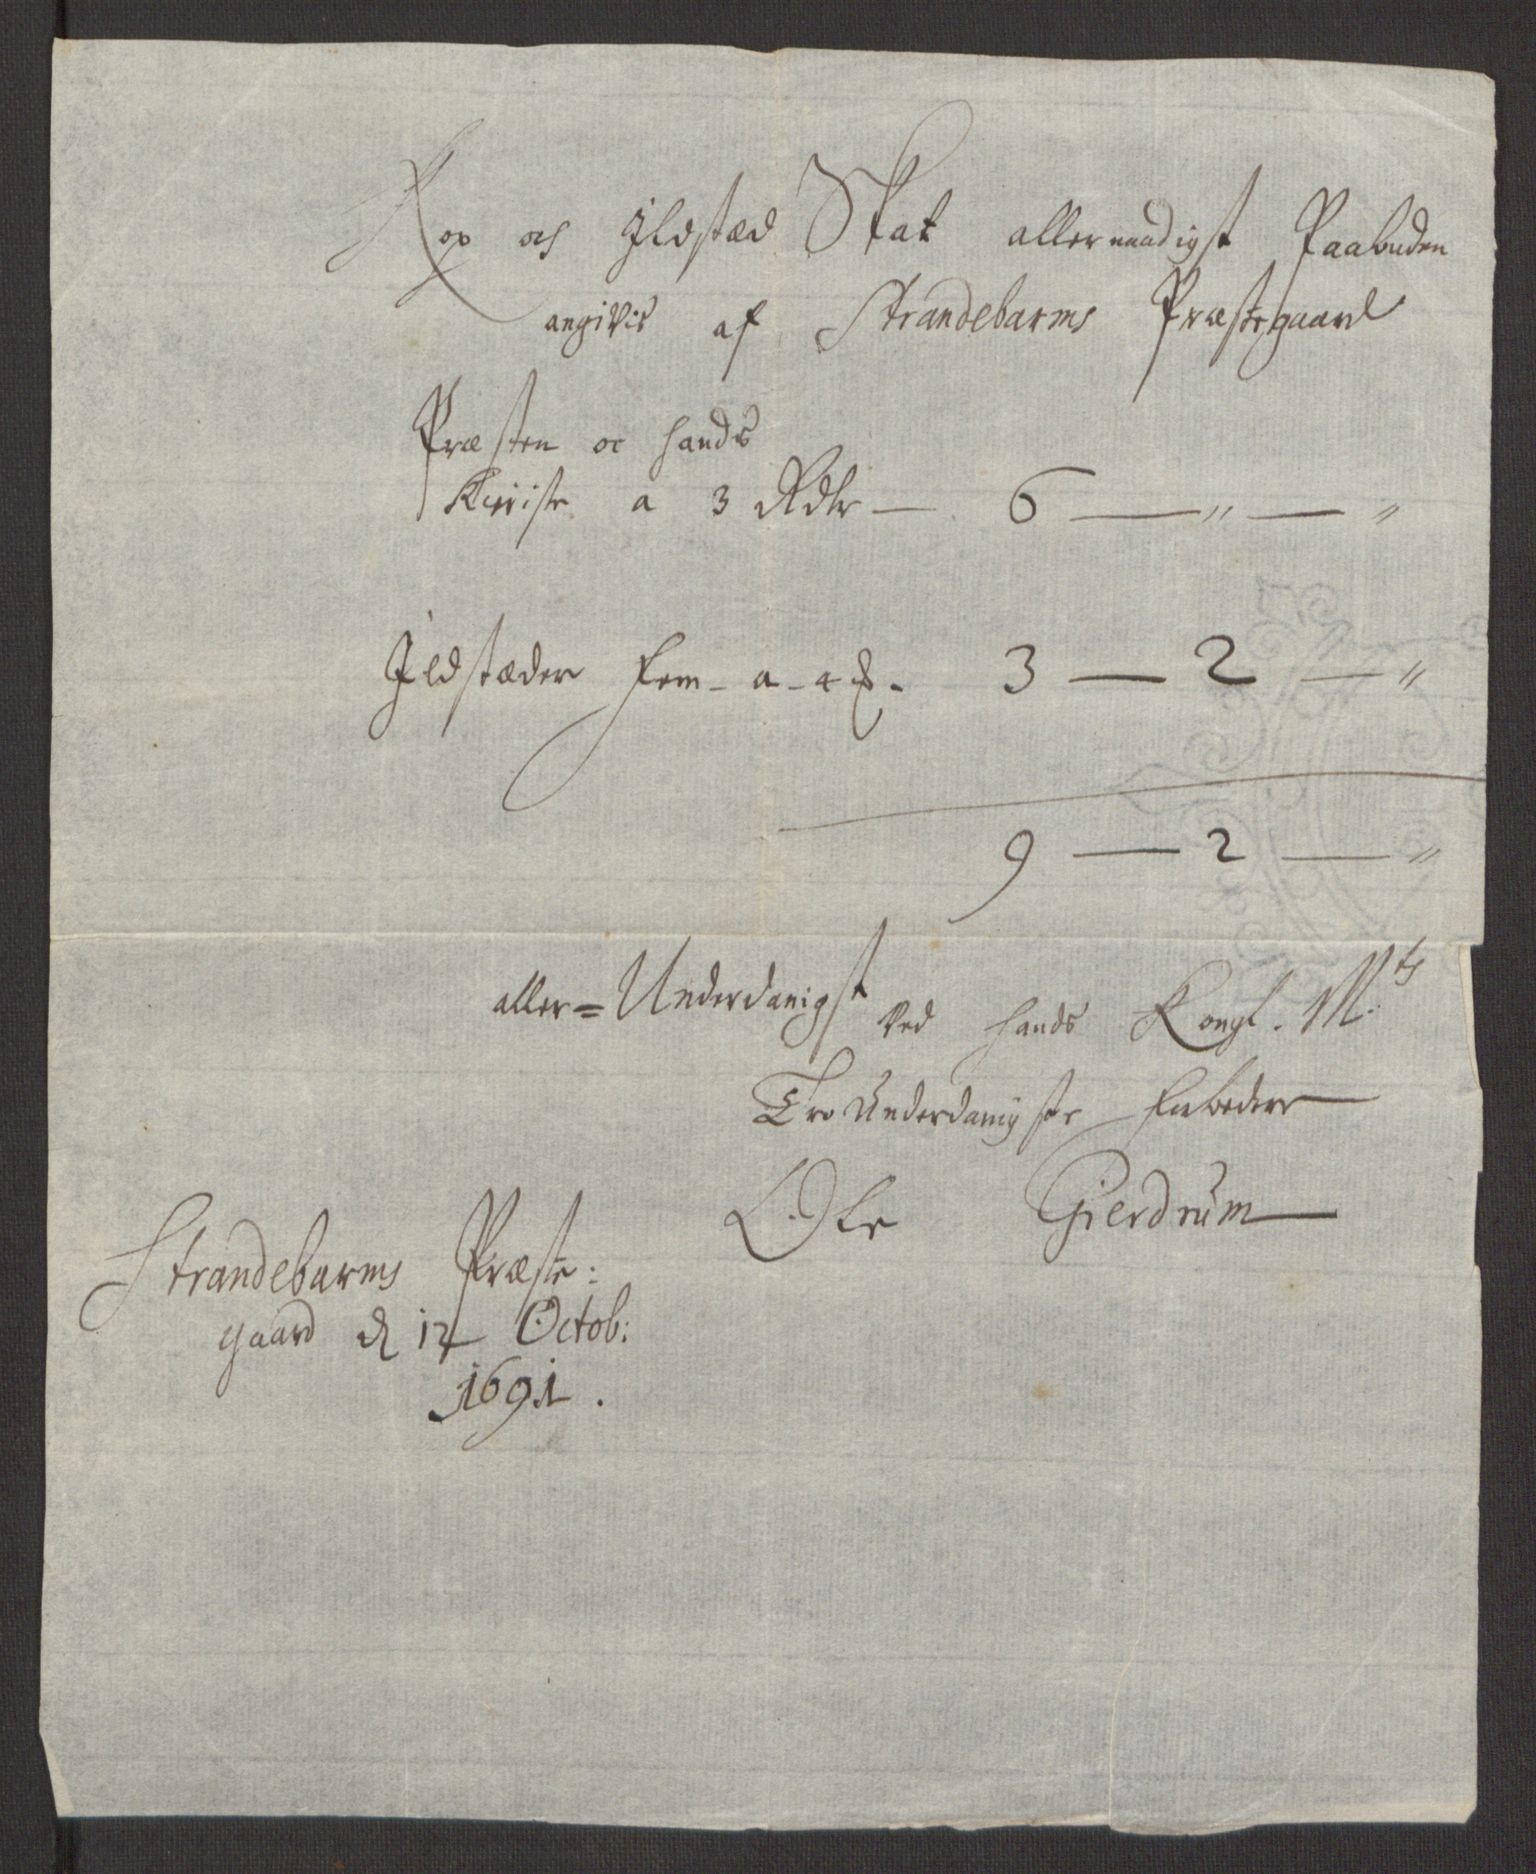 Kop och Ildstæd Skat allernaadigst Paabuden
angivis af Strandebarms Præstegaard
Præsten oc hands
Qviste a 3 Rdlr — 6 — " — "
Ildstæder fem - a - 4 - 3 — 2 — "
9 — 2 — "
aller=Underdanigst
Ved hands Kongl. M:ts
Tro Underdanigste forbeder
Ole Gierdrum
Strandebarms Præste:
gaard d 12 Octob:
1691.